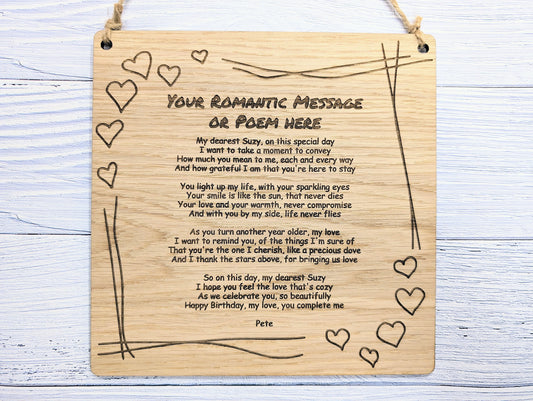 Your Romantic Message
or Poem here
My dearest Suzy, on this special day
I want to take a moment to convey
How much you mean to me, each and every way
And how grateful I am that you're here to stay
You light up my life, with your sparkling eyes
Your smile is like the sun, that never dies
Your love and your warmth, never compromise
And with you by my side, life never flies
As you turn another year older, my love
I want to remind you, of the things I'm sure of
That you're the one I cherish, like a precious dove
And I thank the stars above, for bringing us love
So on this day, my dearest Suzy
I hope you feel the love that's cozy
As we celebrate you, so beautifully
Happy Birthday, my love, you complete me
Pete